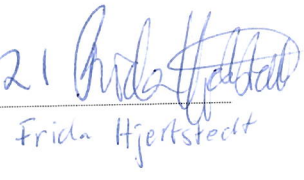 21 Frida Hjertstedt
Frida Hjertstedt